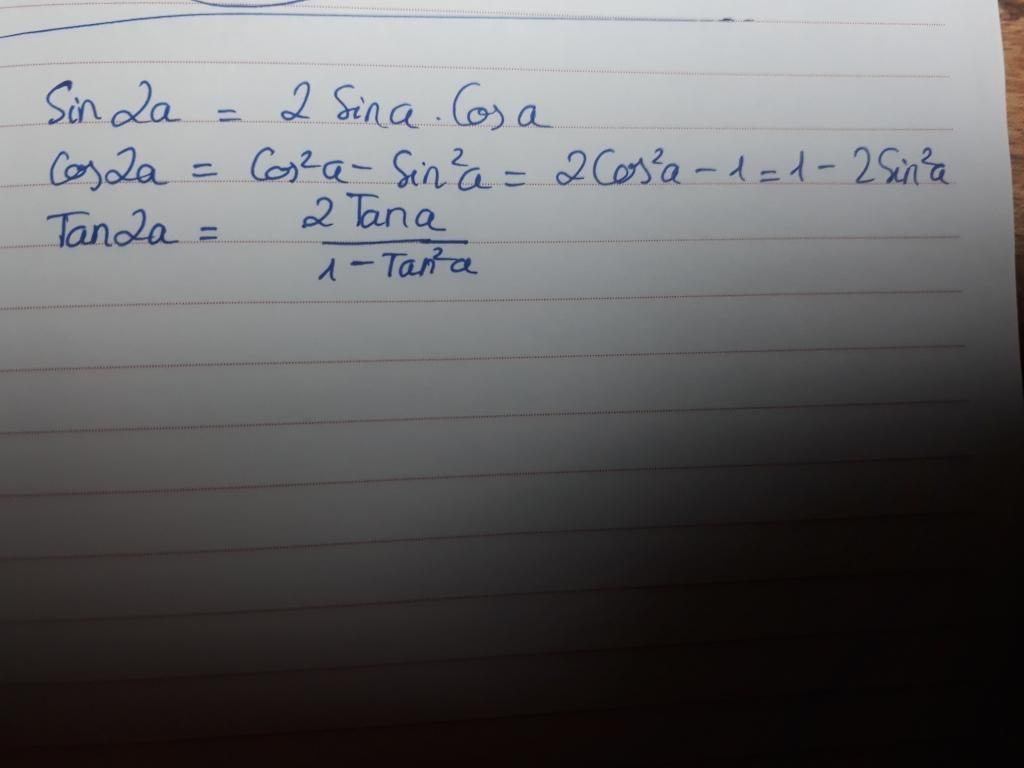 Sin 2a = 2 Sin a . Cos a
Cos 2a = Cos²a - Sin²a = 2 Cos²a - 1 = 1 - 2 Sin²a
Tan 2a = 2 Tan a
1 - Tan²a